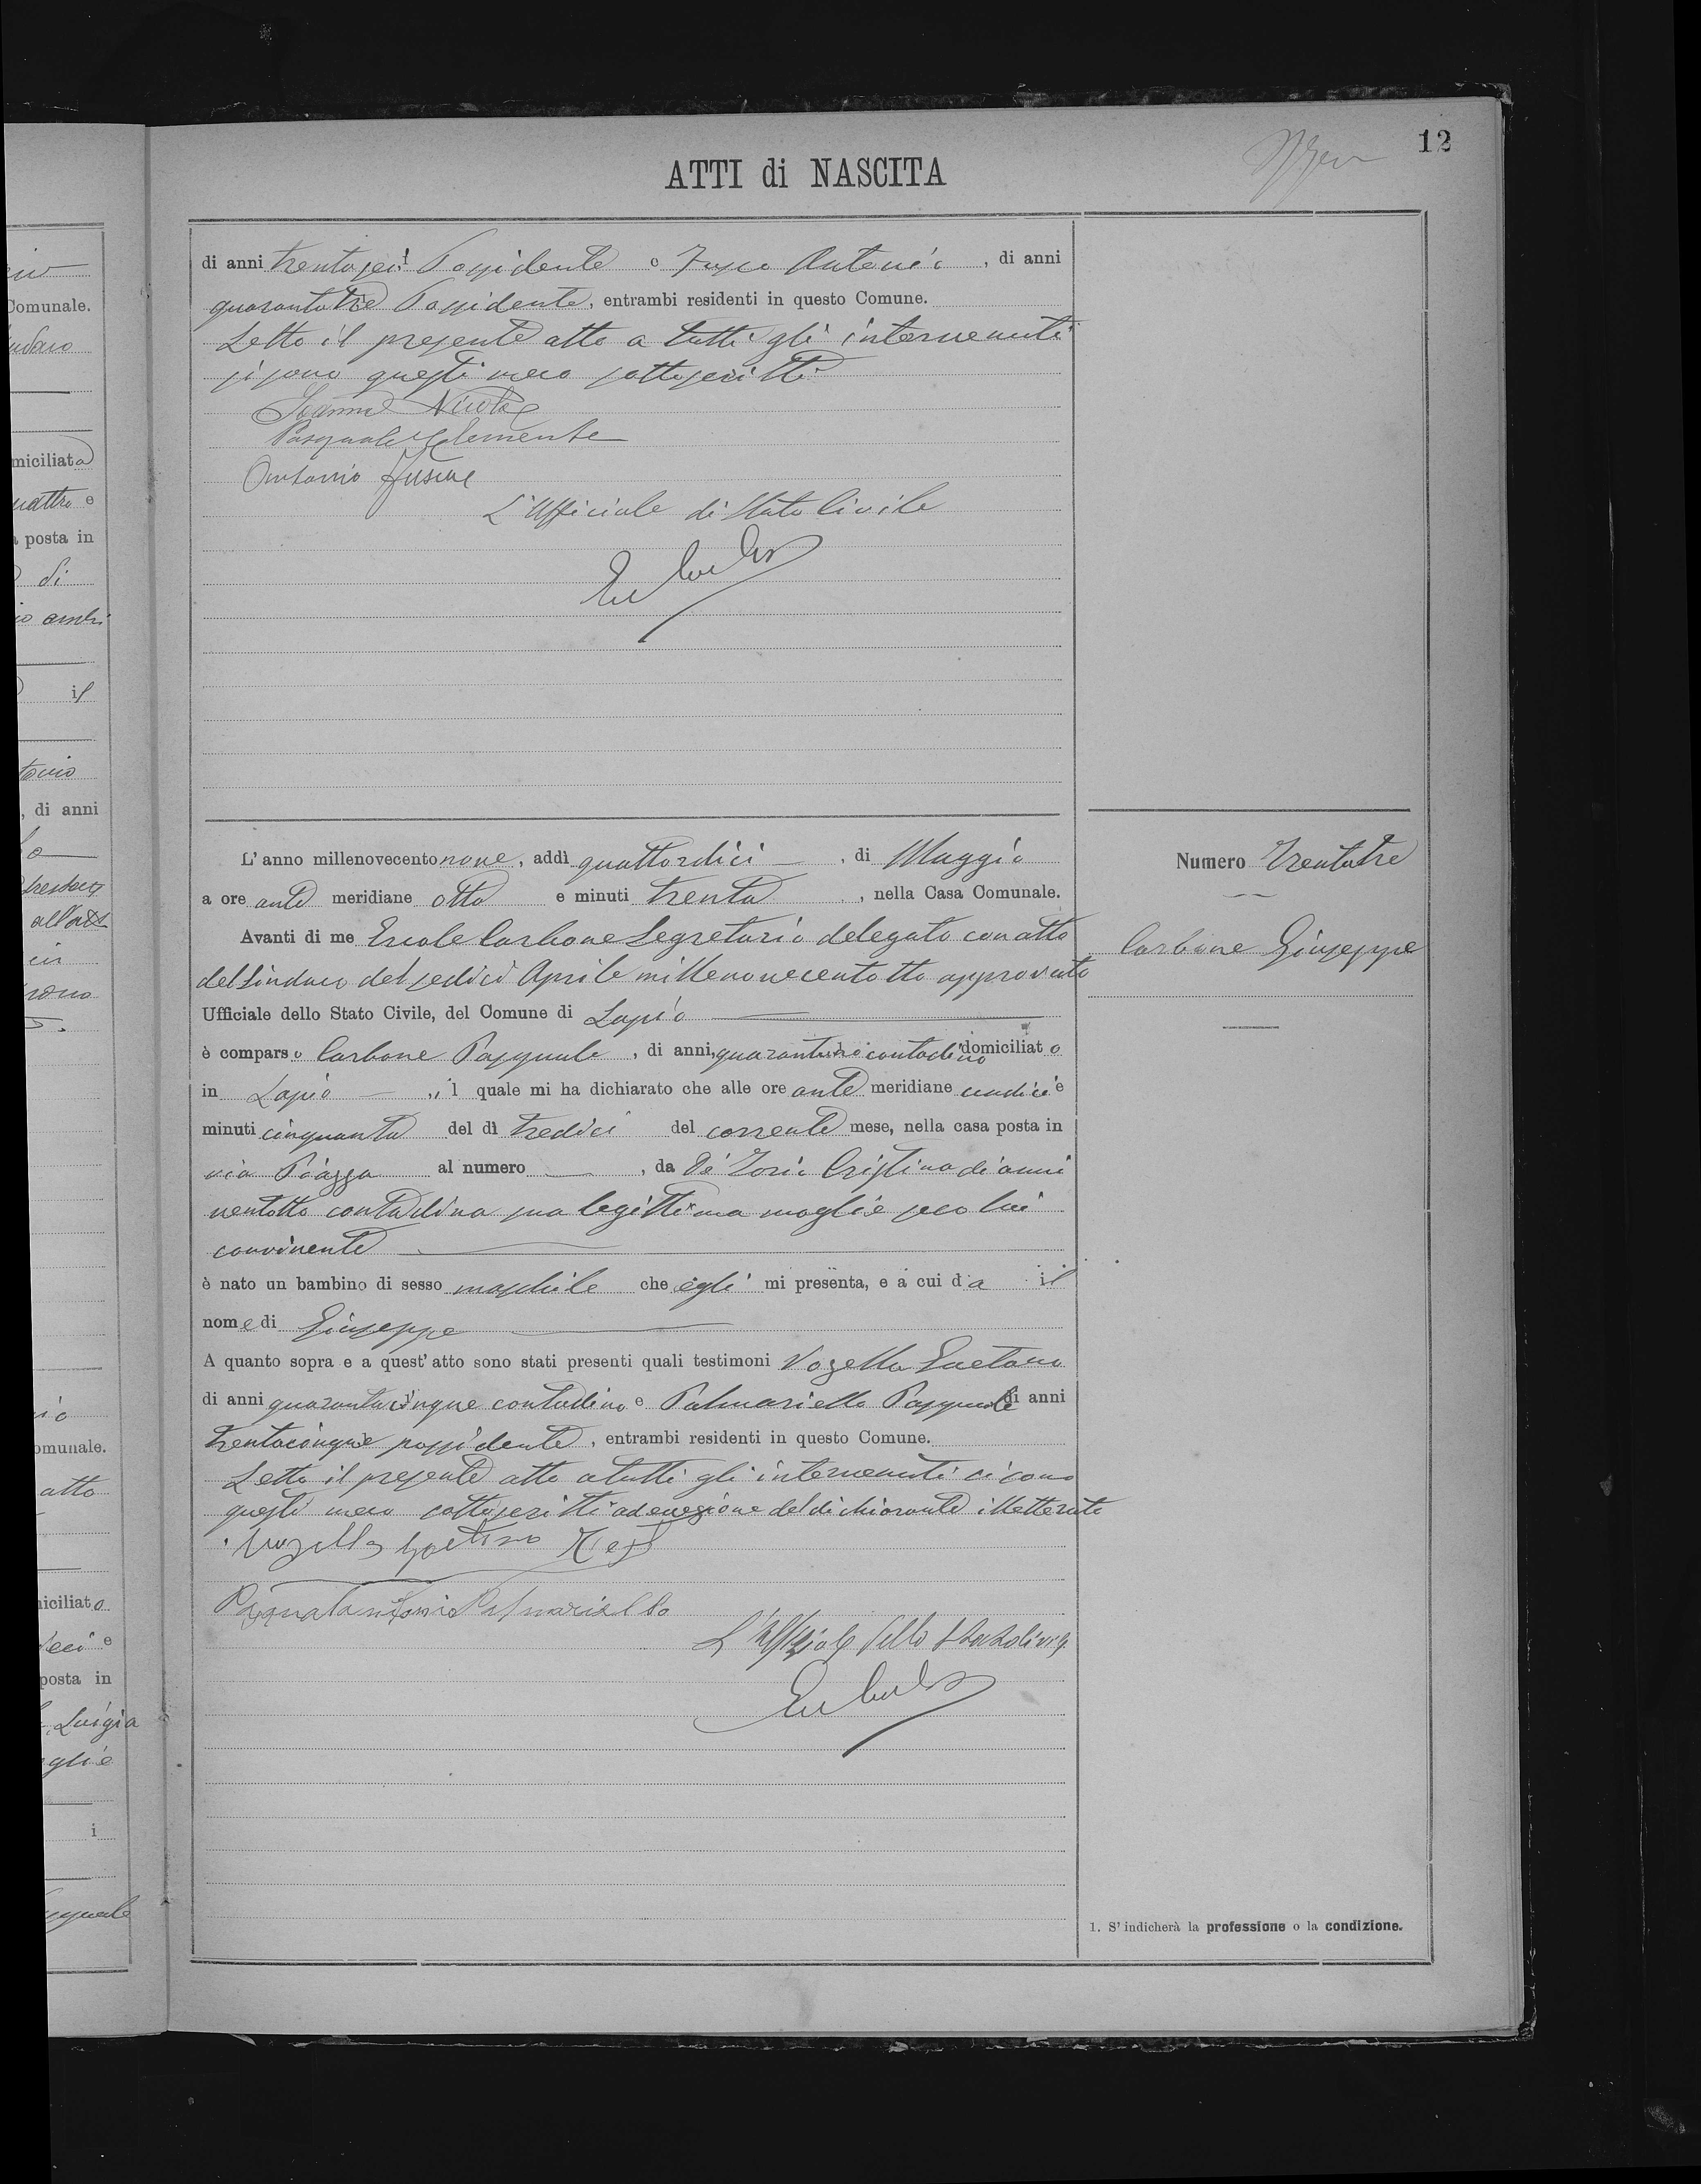 12
ATTI di NASCITA
di anni trentasei Possidente e Fusco Antonio, di anni
quarantatre Possidente, entrambi residenti in questo Comune.
Letto il presente atto a tutti gli intervenuti
si sono questi meco sottoscritti
Nicola
Pasquale Clemente
Antonio Fusco
L'Ufficiale di Stato Civile
L'anno millenovecento nove, addì quattordici, di Maggio
a ore ante meridiane otto e minuti trenta, nella Casa Comunale.
Avanti di me Ercole Carbone Segretario delegato con atto
del Sindaco del sedici Aprile millenovecentotto approvato
Ufficiale dello Stato Civile, del Comune di Lapio
è comparso Carbone Pasquale, di anni, contadino domiciliato
in Lapio, il quale mi ha dichiarato che alle ore ante meridiane undici e
minuti cinquanta del dì tredici del corrente mese, nella casa posta in
via Piazza al numero, da De Iorio Cristina di anni
ventotto contadina sua legittima moglie seco lui
convivente
è nato un bambino di sesso maschile che egli mi presenta, e a cui da il
nome di Giuseppe
A quanto sopra e a quest'atto sono stati presenti quali testimoni Vozella Gaetano
di anni quarantacinque contadino e Palmariello Pasquale di anni
trentacinque possidente, entrambi residenti in questo Comune.
Letto il presente atto a tutti gli intervenuti si sono
questi meco sottoscritti ad eccezione del dichiarante illetterato
Vozella Gaetano Test
Palmariello
L'Uffiziale dello Stato Civile
Numero Trentatre
Carbone Giuseppe
1. S'indicherà la professione o la condizione.